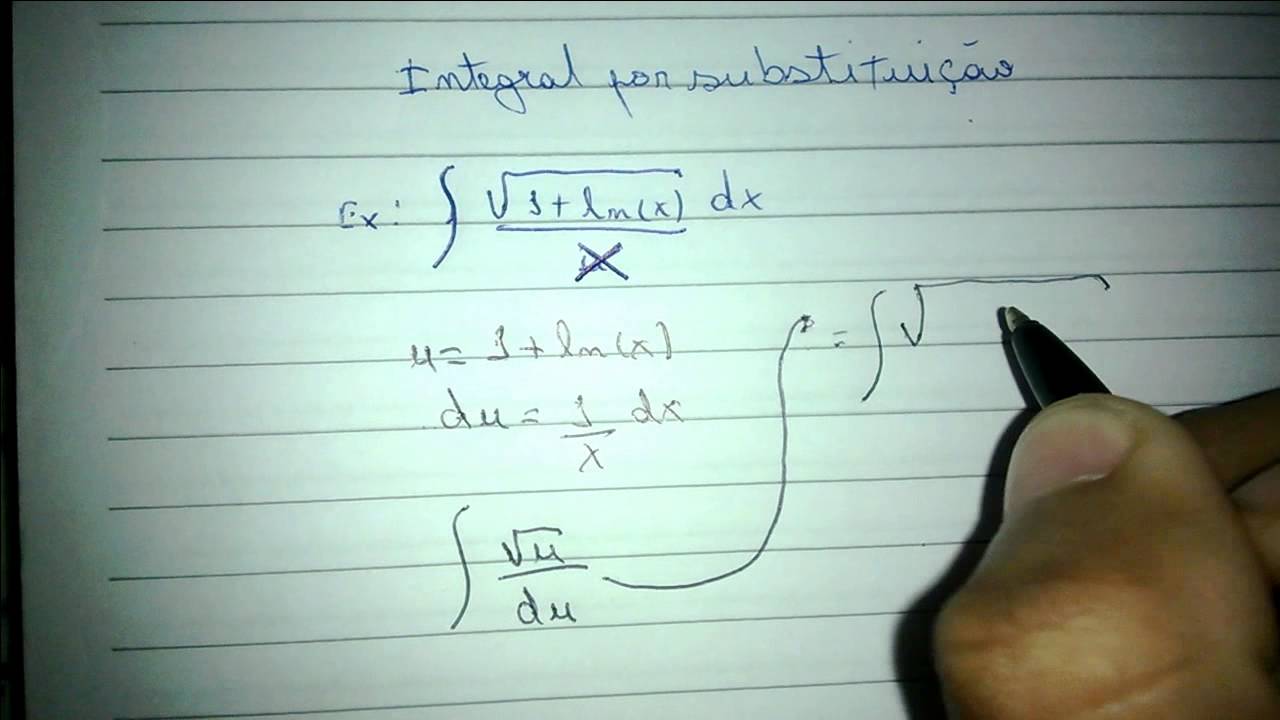 Integral por substituição
Ex: ∫ √(1+ln(x)) / x dx
u = 1 + ln(x)
du = 1/x dx
∫ √u / du
= ∫ √